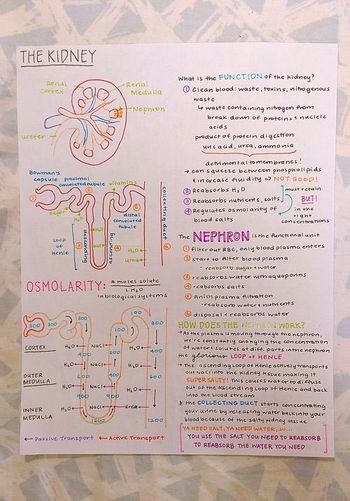 THE KIDNEY
Renal
Cortex
Renal
Medulla
Nephron
ureter
Bowman's
capsule
proximal
convoluted tubule
distal
convoluted
tubule
collecting duct
Loop
of
Henle
descending
OSMOLARITY:
# moles solute
L H₂O
in biological systems
300
300
300
100
CORTEX
H₂O
NaCl
H₂O
400
OUTER
MEDULLA
H₂O
NaCl
H₂O
600
900
INNER
MEDULLA
H₂O
NaCl
urea
1200
1200
← Passive Transport
← Active Transport
What is the FUNCTION of the kidney?
① Clean blood: waste, toxins, nitrogenous
waste
↳ waste containing nitrogen from
break down of proteins & nucleic
acids
product of protein digestion
urea, uric acid, ammonia
detrimental to membranes!
→ can squeeze between phospholipids
& increase fluidity → NOT GOOD!
② Reabsorbs H₂O
③ Reabsorbs nutrients, salts
④ Regulates osmolarity of
blood salts
must retain
BUT!
in the
right
concentrations
The NEPHRON is the functional unit
① filter out RBC, only blood plasma enters
② start to filter blood plasma
- reabsorb sugar + water
③ reabsorbs water with aquaporins
④ reabsorbs salts
⑤ finish plasma filtration
- reabsorb water + nutrients
⑥ disposal + reabsorb water
HOW DOES THE NEPHRON WORK?
→ As the plasma is moving through the nephron,
we're constantly changing the concentration
of water & solutes @ diff. parts in the nephron
the glorious LOOP OF HENLE
→ The ascending Loop of Henle actively transports
out NaCl into the kidney tissue making it
SUPER SALTY! This causes water to diffuse
out of the descending Loop of Henle and back
into the blood stream
→ the COLLECTING DUCT starts concentrating
your urine by releasing water back into your
blood because of the salty kidney tissue
YA NEED SALT, YA NEED WATER, so...
YOU USE THE SALT YOU NEED TO REABSORB
TO REABSORB THE WATER YOU NEED